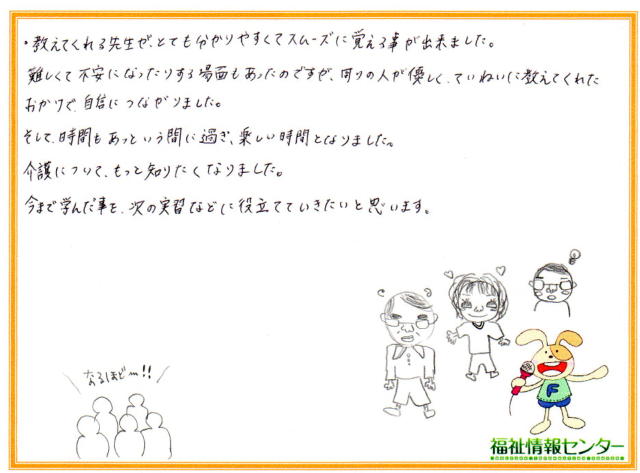 ・教えてくれる先生が、とても分かりやすくてスムーズに覚える事が出来ました。
難しくて不安になったりする場面もあったのですが、周りの人が優しく、ていねいに教えてくれた
おかげで、自信につながりました。
そして、時間もあっという間に過ぎ、楽しい時間となりました。
介護について、もっと知りたくなりました。
今まで学んだ事を、次の実習などに役立てていきたいと思います。
なるほど〜!!
F
福祉情報センター